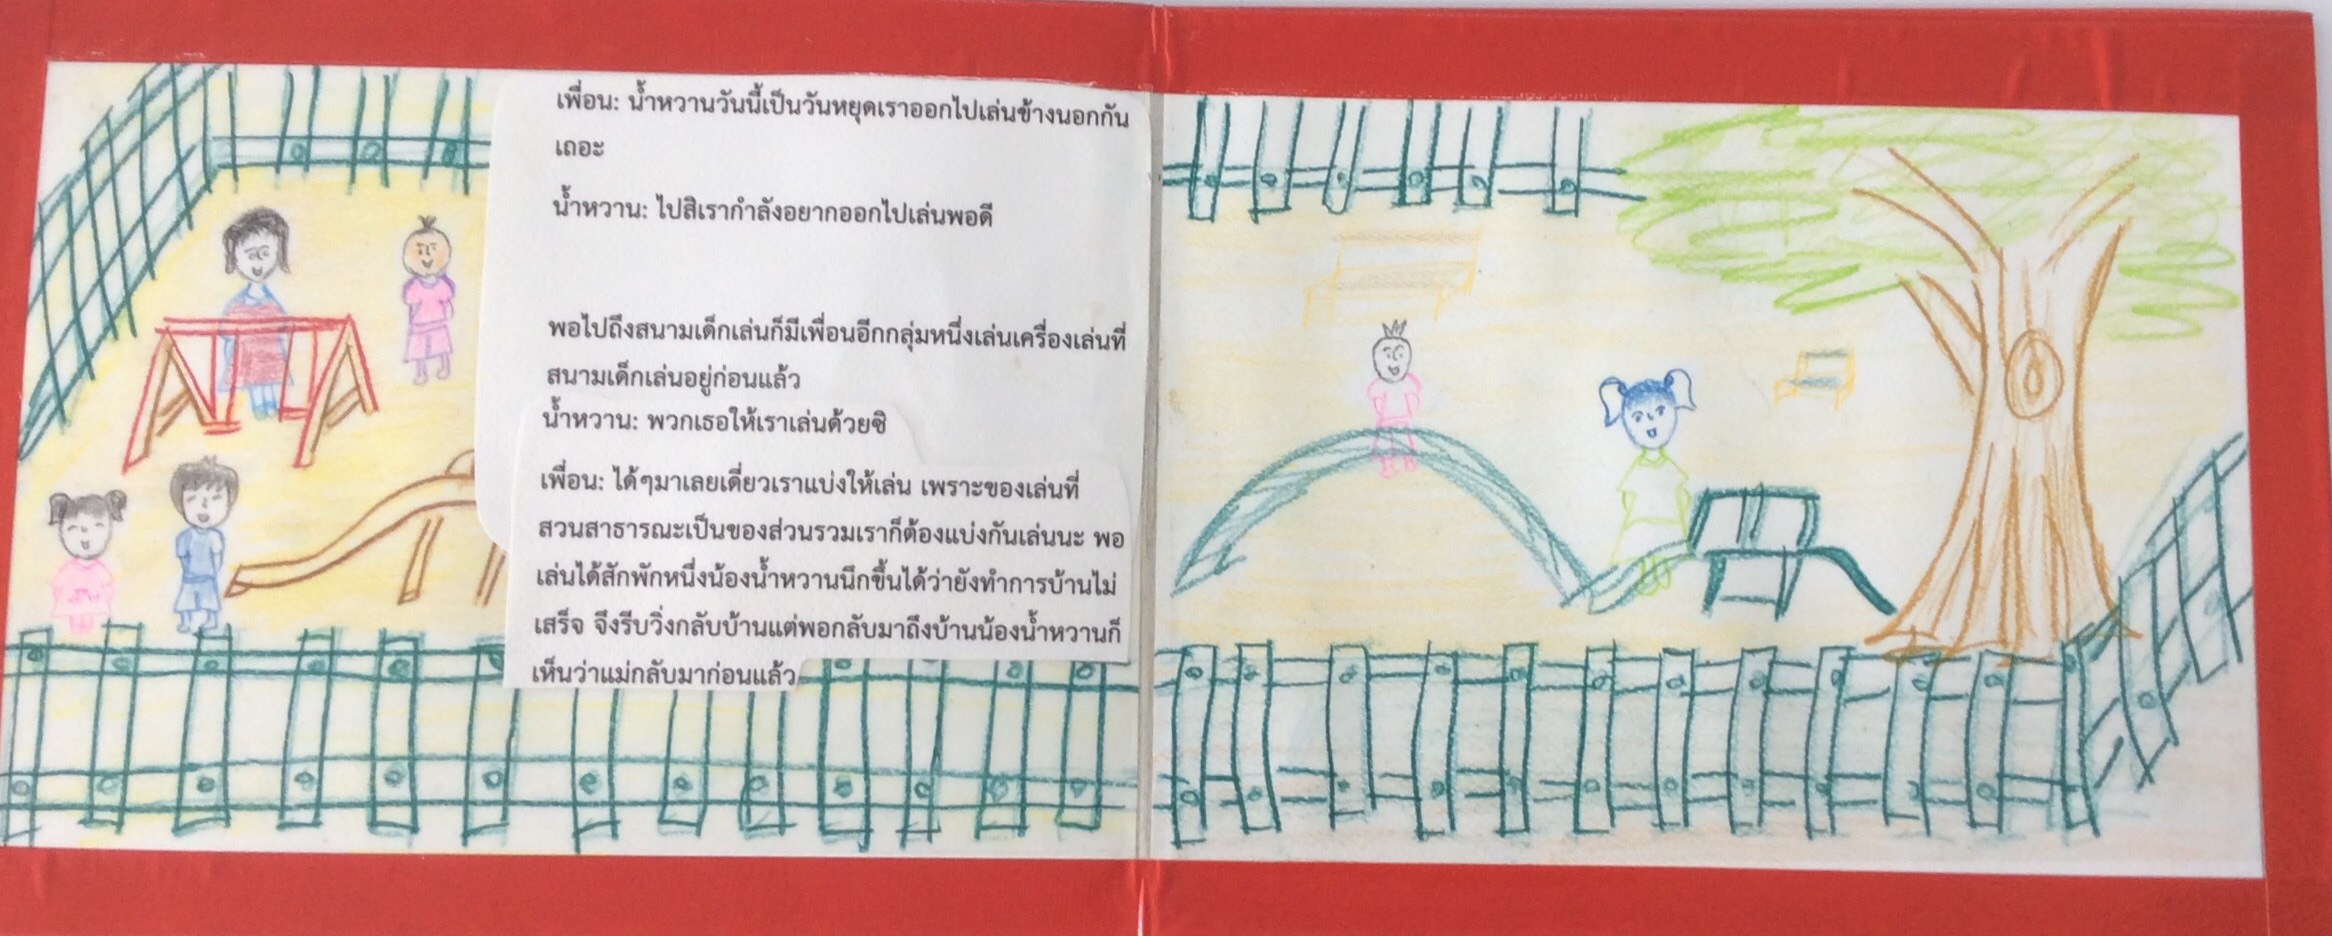 เพื่อน: น้ำหวานวันนี้เป็นวันหยุดเราออกไปเล่นข้างนอกกัน
เถอะ
น้ำหวาน: ไปสิเรากำลังอยากออกไปเล่นพอดี
พอไปถึงสนามเด็กเล่นก็มีเพื่อนอีกกลุ่มหนึ่งเล่นเครื่องเล่นที่
สนามเด็กเล่นอยู่ก่อนแล้ว
น้ำหวาน: พวกเธอให้เราเล่นด้วยซิ
เพื่อน: ได้ๆมาเลยเดี่ยวเราแบ่งให้เล่น เพราะของเล่นที่
สวนสาธารณะเป็นของส่วนรวมเราก็ต้องแบ่งกันเล่นนะ พอ
เล่นได้สักพักหนึ่งน้องน้ำหวานนึกขึ้นได้ว่ายังทำการบ้านไม่
เสร็จ จึงรีบวิ่งกลับบ้านแต่พอกลับมาถึงบ้านน้องน้ำหวานก็
เห็นว่าแม่กลับมาก่อนแล้ว